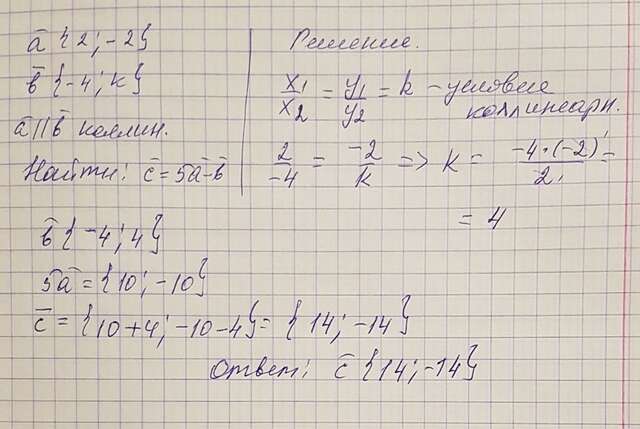 ā {2; -2}
b̄ {-4; k}
ā || b̄ коллин.
Найти: c̄ = 5ā - b̄
Решение.
x₁/x₂ = y₁/y₂ = k - условие
коллинеарн.
2/-4 = -2/k => k = -4·(-2)/2 =
= 4
b̄ {-4; 4}
5ā = {10; -10}
c̄ = {10+4; -10-4} = {14; -14}
Ответ: c̄ {14; -14}